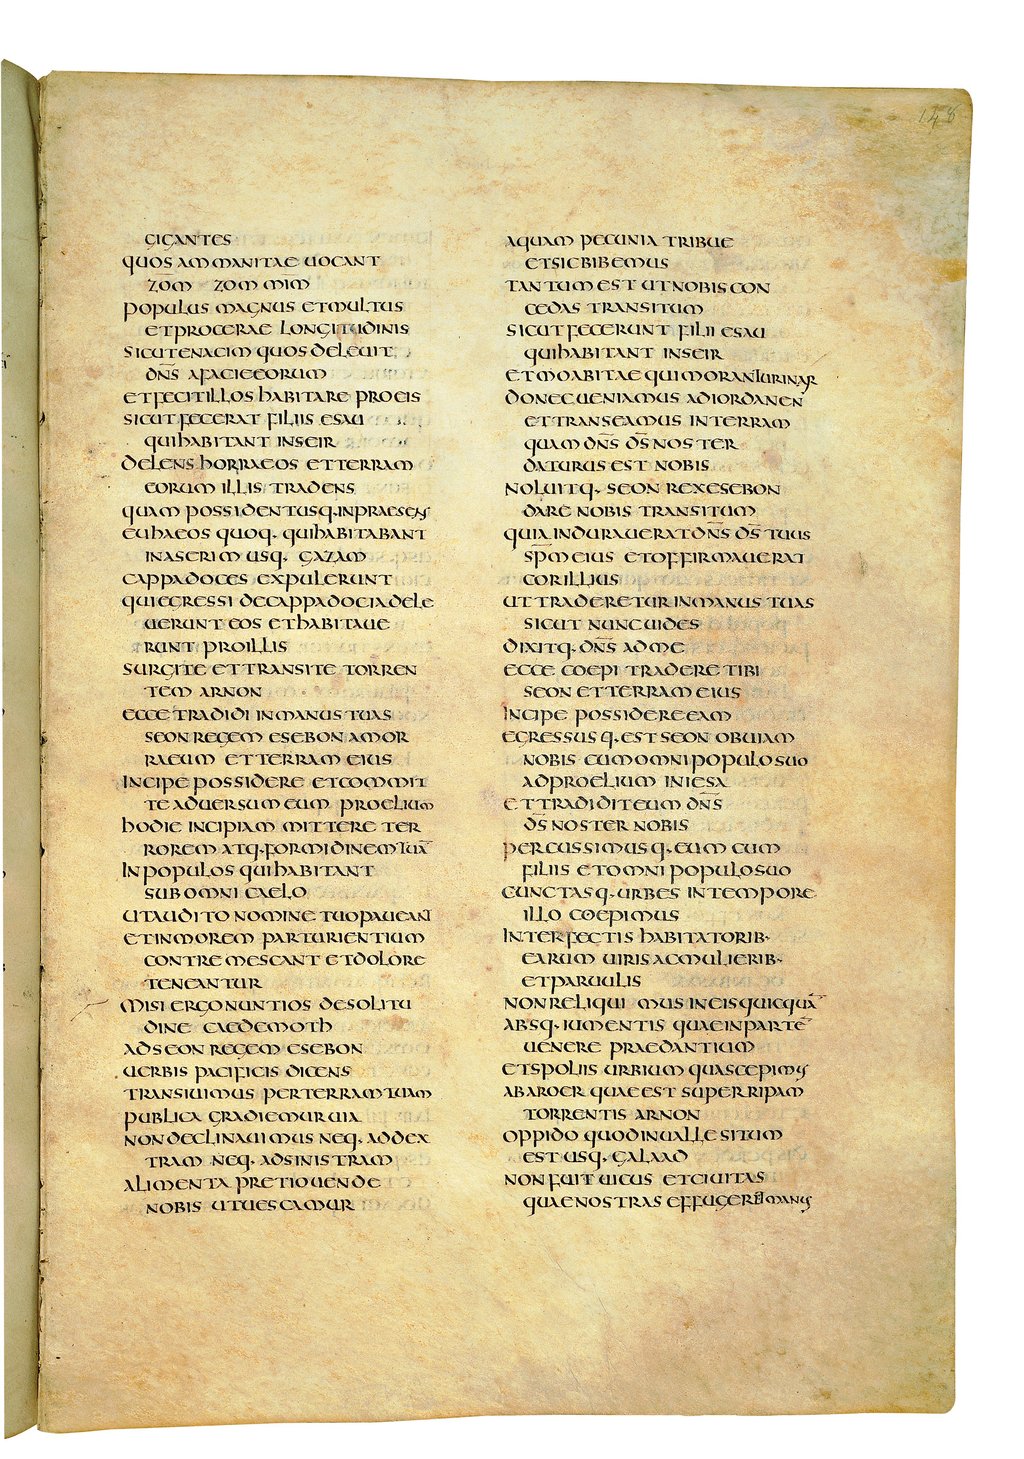 148
GIGANTES
QUOS AMMANITAE UOCANT
ZOM̅ ZOM MIM̅
POPULUS MAGNUS ET MULTUS
ET PROCERAE LONGITUDINIS
SICUT ENACIM QUOS DELEUIT
DN̅S A FACIE EORUM
ET FECIT ILLOS HABITARE PRO EIS
SICUT FECERAT FILIIS ESAU
QUI HABITANT IN SEIR
DELENS HORRAEOS ET TERRAM
EORUM ILLIS TRADENS
QUAM POSSIDENT USQ· IN PRAESENS
EUHAEOS QUOQ· QUI HABITABANT
IN ASERIM USQ· GAZAM
CAPPADOCES EXPULERUNT
QUI EGRESSI DE CAPPADOCIA DELE
UERUNT EOS ET HABITAUE
RUNT PRO ILLIS
SURGITE ET TRANSITE TORREN
TEM ARNON
ECCE TRADIDI IN MANUS TUAS
SEON REGEM ESEBON AMOR
RAEUM ET TERRAM EIUS
INCIPE POSSIDERE ET COMMIT
TE ADUERSUM EUM PROELIUM
HODIE INCIPIAM MITTERE TER
ROREM ATQ· FORMIDINEM TUA̅
IN POPULOS QUI HABITANT
SUB OMNI CAELO
UT AUDITO NOMINE TUO PAUEANT
ET IN MOREM PARTURIENTIUM
CONTREMESCANT ET DOLORE
TENEANTUR
MISI ERGO NUNTIOS DE SOLITU
DINE CAEDEMOTH
AD SEON REGEM ESEBON
UERBIS PACIFICIS DICENS
TRANSIUIMUS PER TERRAM TUAM
PUBLICA GRADIEMUR UIA
NON DECLINAUIMUS NEQ· AD DEX
TRAM NEQ· AD SINISTRAM
ALIMENTA PRETIO UENDE
NOBIS UT UESCAMUR
AQUAM PECUNIA TRIBUE
ET SIC BIBEMUS
TANTUM EST UT NOBIS CON
CEDAS TRANSITUM
SICUT FECERUNT FILII ESAU
QUI HABITANT IN SEIR
ET MOABITAE QUI MORANTUR IN AR
DONEC UENIAMUS AD IORDANEN
ET TRANSEAMUS IN TERRAM
QUAM DN̅S D̅S NOSTER
DATURUS EST NOBIS
NOLUITQ· SEON REX ESEBON
DARE NOBIS TRANSITUM
QUIA INDURAUERAT DN̅S D̅S TUUS
SP̅M EIUS ET OFFIRMAUERAT
COR ILLIUS
UT TRADERETUR IN MANUS TUAS
SICUT NUNC UIDES
DIXITQ· DN̅S AD ME
ECCE COEPI TRADERE TIBI
SEON ET TERRAM EIUS
INCIPE POSSIDERE EAM
EGRESSUSQ· EST SEON OBUIAM
NOBIS CUM OMNI POPULO SUO
AD PROELIUM IN IESA
ET TRADIDIT EUM DN̅S
D̅S NOSTER NOBIS
PERCUSSIMUSQ· EUM CUM
FILIIS ET OMNI POPULO SUO
CUNCTASQ· URBES IN TEMPORE
ILLO COEPIMUS
INTERFECTIS HABITATORIB·
EARUM UIRIS AC MULIERIB·
ET PARUULIS
NON RELIQUIMUS IN EIS QUICQUA̅
ABSQ· IUMENTIS QUAE IN PARTE̅
UENERE PRAEDANTIUM
ET SPOLIIS URBIUM QUAS CEPIMUS
AB AROER QUAE EST SUPER RIPAM
TORRENTIS ARNON
OPPIDO QUOD IN UALLE SITUM
EST USQ· GALAAD
NON FUIT UICUS ET CIUITAS
QUAE NOSTRAS EFFUGERET MANUS